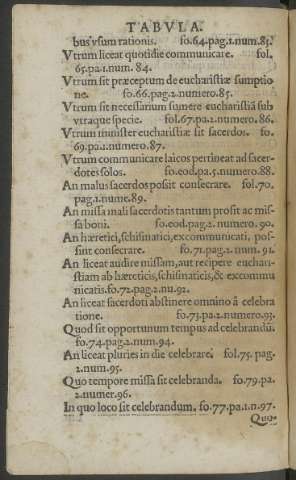 TABVLA.
bus vsum rationis. fo.64.pag.1.num.83.
Vtrum liceat quotidie communicare. fol.
65.pa.1.num. 84.
Vtrum sit præceptum de eucharistiæ sumptio
ne. fo.66.pag.2.numero.85.
Vtrum sit necessarium sumere eucharistiã sub
vtraque specie. fol.67.pa.2.numero.86.
Vtrum minister eucharistiæ sit sacerdos. fo.
69.pa.1.numero.87.
Vtrum communicare laicos pertineat ad sacer-
dotes solos. fo.eod.pa.5.numero.88.
An malus sacerdos possit consecrare. fol.70.
pag.1.nume.89.
An missa mali sacerdotis tantum prosit ac mis-
sa boni. fo.eod.pag.2.numero.90.
An hæretici, schismatici, excommunicati, pos-
sint consecrare. fo.71.pag.2.num.91.
An liceat audire missam, aut recipere euchari-
stiam ab hæreticis, schismaticis, & excommu
nicatis.fo.72.pag.2.nu.92.
An liceat sacerdoti abstinere omnino â celebra
tione. fo.73.pa.2.numero.93.
Quod sit opportunum tempus ad celebrandũ.
fo.74.pag.2.num.94.
An liceat pluries in die celebrare. fol.75.pag.
2.num.95.
Quo tempore missa sit celebranda. fo.79.pa.
2.numer.96.
In quo loco sit celebrandum. fo.77.pa.1.n.97.
Quo-